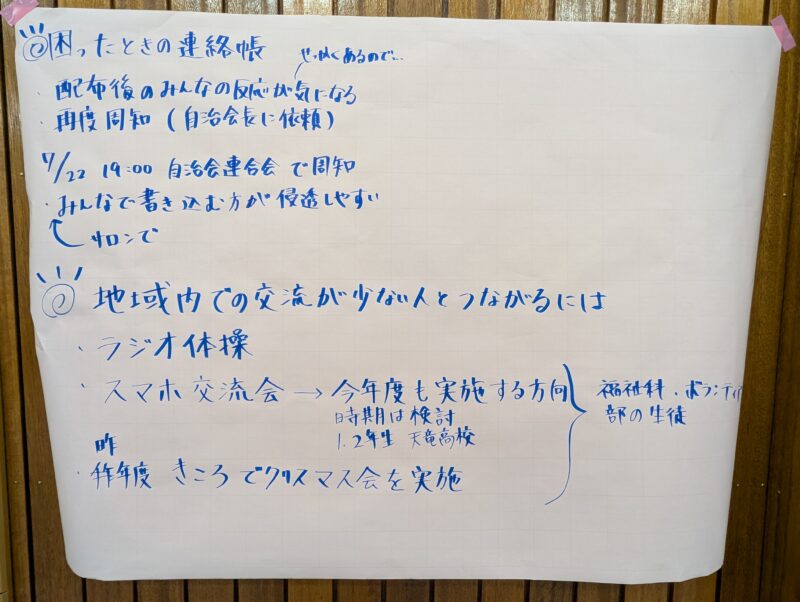 ◎困ったときの連絡帳
せっかくあるので…
・配布後のみんなの反応が気になる
・再度周知（自治会長に依頼）
7/22 19:00 自治会連合会で周知
・みんなで書き込む方が浸透しやすい
サロンで
◎地域内での交流が少ない人とつながるには
・ラジオ体操
・スマホ交流会→今年度も実施する方向
時期は検討
1.2年生 天竜高校
福祉科、ボランティア
部の生徒
昨
・昨年度 きころでクリスマス会を実施